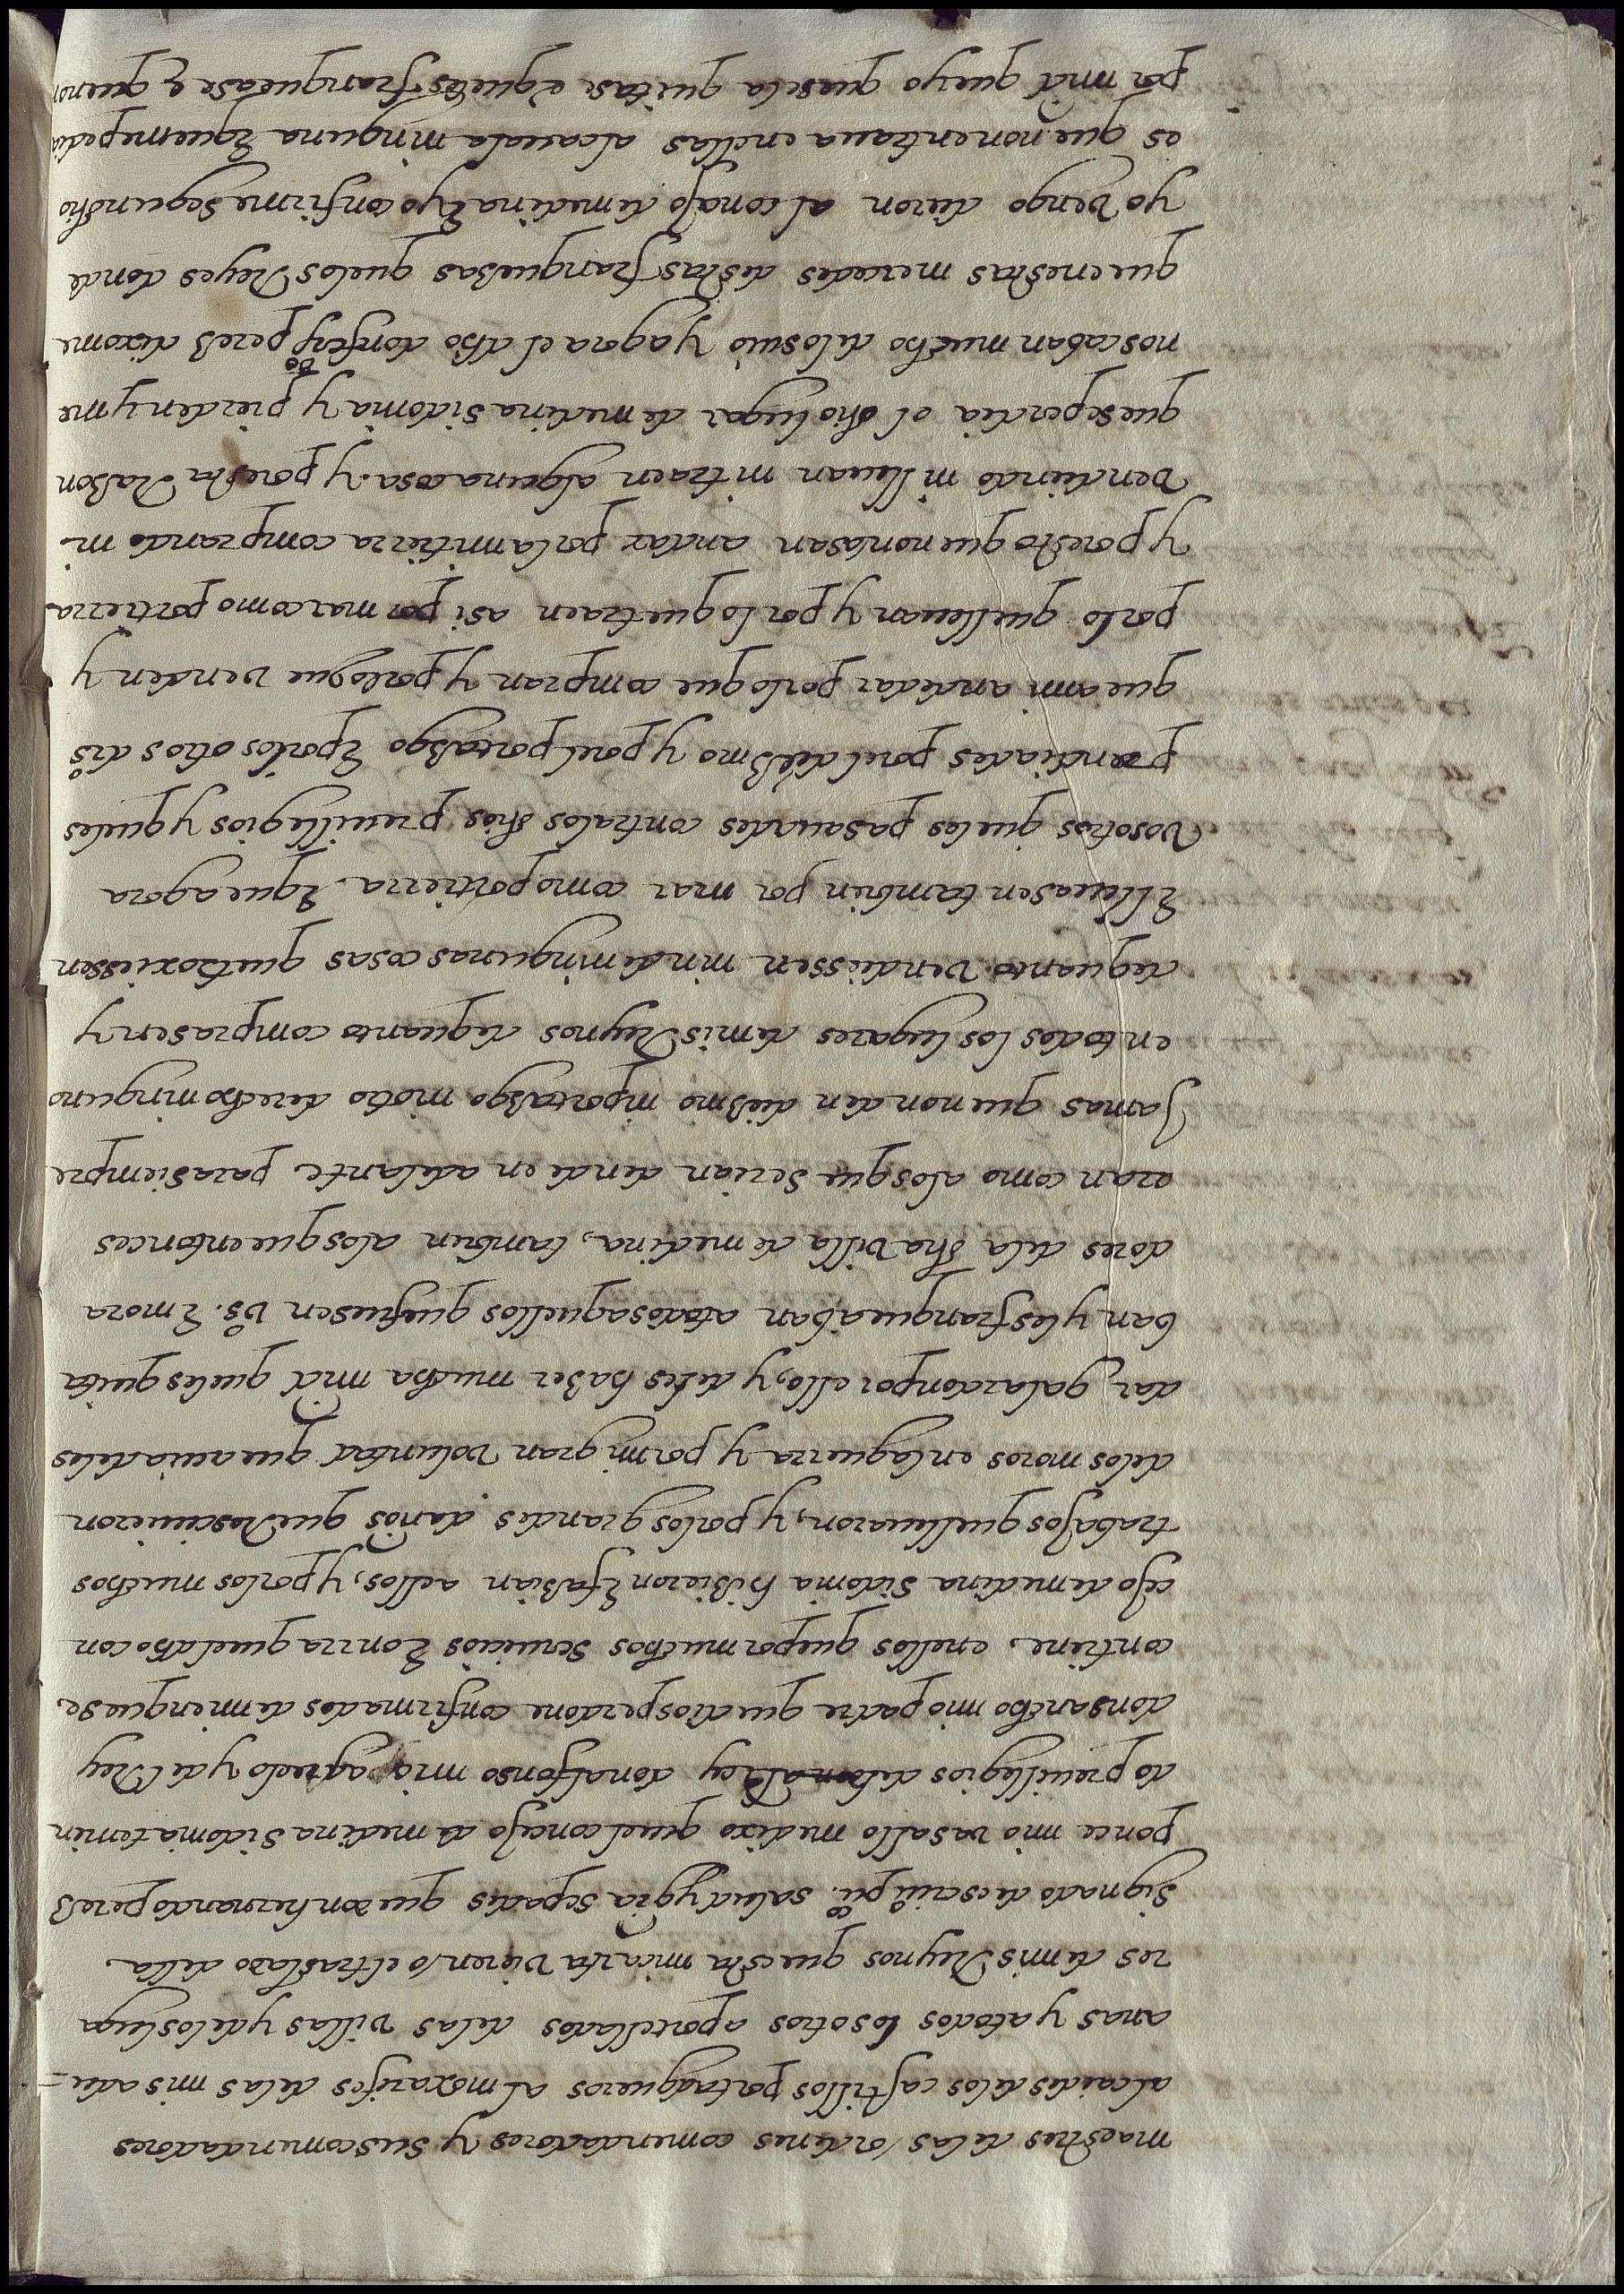 maestres delas ordenes comendadores y suscomendadores
alcaides delos castillos portagueros almoxarifes delas mis adu=
anas y atodos losotros aportellados delas villas y delos luga
res demis Reynos que esta mi carta vieren /o el traslado della
signado de escriu° pu^co. salud y gr̃a sepades que don hernando perez
ponce mio vasallo medixo quel concejo de medina sidonia tenien
do preuillegios del Rey don alfonso mio aguelo y del Rey
don sancho mio padre que dios perdone confirmados demi enquese
contiene enellos quepor muchos seruicios E onrra quel dho con
cejo de medina sidonia hizieron E fazian aellos, y porlos muchos
trabajos quelleuaron, y porlos grandes daños que Rescuieron
delos moros enlaguerra y pormi gran voluntad que auiadeles
dar galardonpor ello, y deles hazer mucha mrd queles quita
ban y lesfranqueaban atodosaquellos quefuesen v^os. E mora
dores dela dha villa de medina, tambien alosqueentonces
eran como alosque serian dende en adelante parasiempre
Jamas quenonden diezmo niportazgo niotro derecho ninguno
en todos los lugares demis Reynos dequanto comprasen y
dequanto vendiessen nin deningunas cosas quetroxiessen
E lleuasen tambien por mar como portierra. E que agora
vosotros queles pasauades contralos dhos preuillegios y queles
prendiades porel diezmo y porel portazgo E porlos otros drs
que ami andedar porloque compran y porloque venden y
porlo quelleuan y porlo quetraen asi por marcomo portierra
y poresto quenonosan andar porlamitierra comprando ni
vendiendo nilleuan nitraen algunacosa y poresta Razon
queseperdia el dho lugar de medina sidonia y pierden y me
noscaban mucho delosuio y agora el dho donfer^do perez dixome
queenestas mercedes destas franquezas quelos Reyes donde
yo vengo dieron al conçejo demedina E yo confirme segundho
es que nonentraua enellas alcauala ninguna E quemepedia
por mrd queyo quesela quitase e queles franquease e quenon